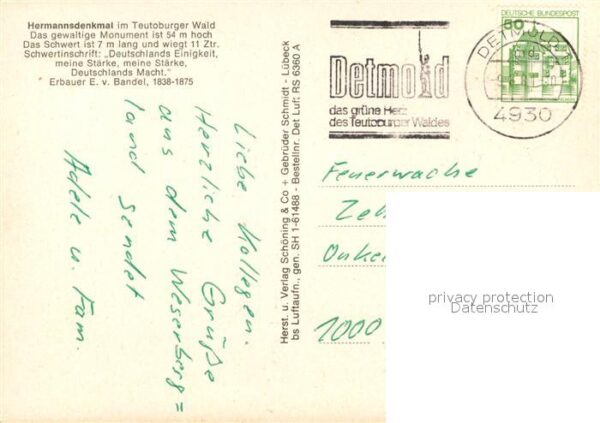 Hermannsdenkmal im Teutoburger Wald
Das gewaltige Monument ist 54 m hoch
Das Schwert ist 7 m lang und wiegt 11 Ztr.
Schwertinschrift: „Deutschlands Einigkeit,
meine Stärke, meine Stärke,
Deutschlands Macht."
Erbauer E. v. Bandel, 1838-1875
Liebe Kollegen.
Herzliche Grüße
aus dem Weserberg=
land sendet
Adele u. Fam.
Herst. u. Verlag Schöning & Co + Gebrüder Schmidt - Lübeck
bs Luftaufn., gen. SH 1-61488 - Bestellnr. Det Luft RS 6360 A
Detmold
das grüne Herz
des Teutoburger Waldes
DEUTSCHE BUNDESPOST
DETMOLD
4930
Feuerwache
1000
privacy protection
Datenschutz